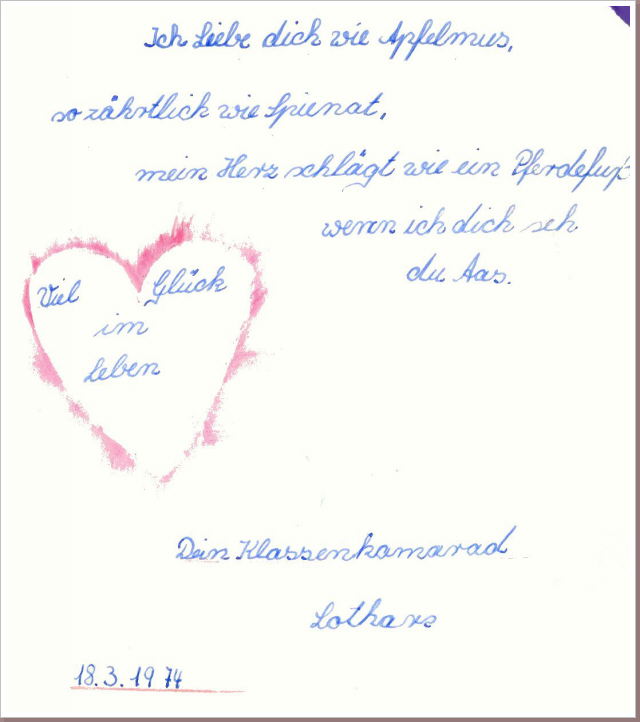 Ich Liebe dich wie Apfelmus,
so zährtlich wie Spienat,
mein Herz schlägt wie ein Pferdefuß
wenn ich dich seh
du Aas.
Viel Glück
im
Leben
Dein Klassenkamarad
Lothars
18.3.1974